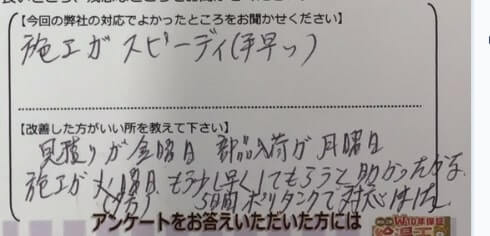 【今回の弊社の対応でよかったところをお聞かせください】
施工がスピーディ(手早っ)
【改善した方がいい所を教えて下さい】
見積りが金曜日 部品入荷が月曜日
施工が火曜日 もう少し早くしてもらうと助かったかな
(夕方) 5日間ポリタンクで対応
アンケートをお答えいただいた方には
W10年保証